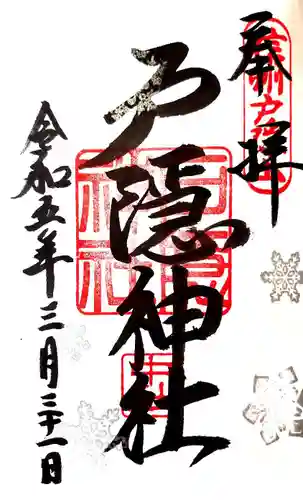 奉拝
戸隠神社
令和五年三月三十一日